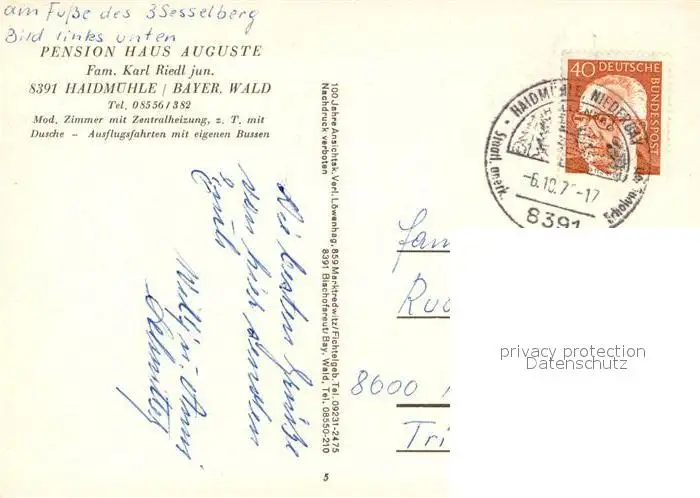 am Fuße des 3Sesselberg
Bild links unten
PENSION HAUS AUGUSTE
Fam. Karl Riedl jun.
8391 HAIDMÜHLE / BAYER. WALD
Tel. 08556 / 382
Mod. Zimmer mit Zentralheizung, z. T. mit
Dusche – Ausflugsfahrten mit eigenen Bussen
Die besten Grüße
von hier senden
Euch
Willy u.
100 Jahre Ansichtsk. Verl. Löwenhag, 859 Marktredwitz/Fichtelgeb. Tel. 09231-2475
Nachdruck verboten 8391 Bischofsreut/Bay. Wald, Tel. 08550-210
5
40 DEUTSCHE BUNDESPOST
HAIDMÜHLE NIEDERBAY
Staatl. anerk. Erholungs
-6.10.7 -17
8391
Fam
Rud
8600
Tri
privacy protection
Datenschutz